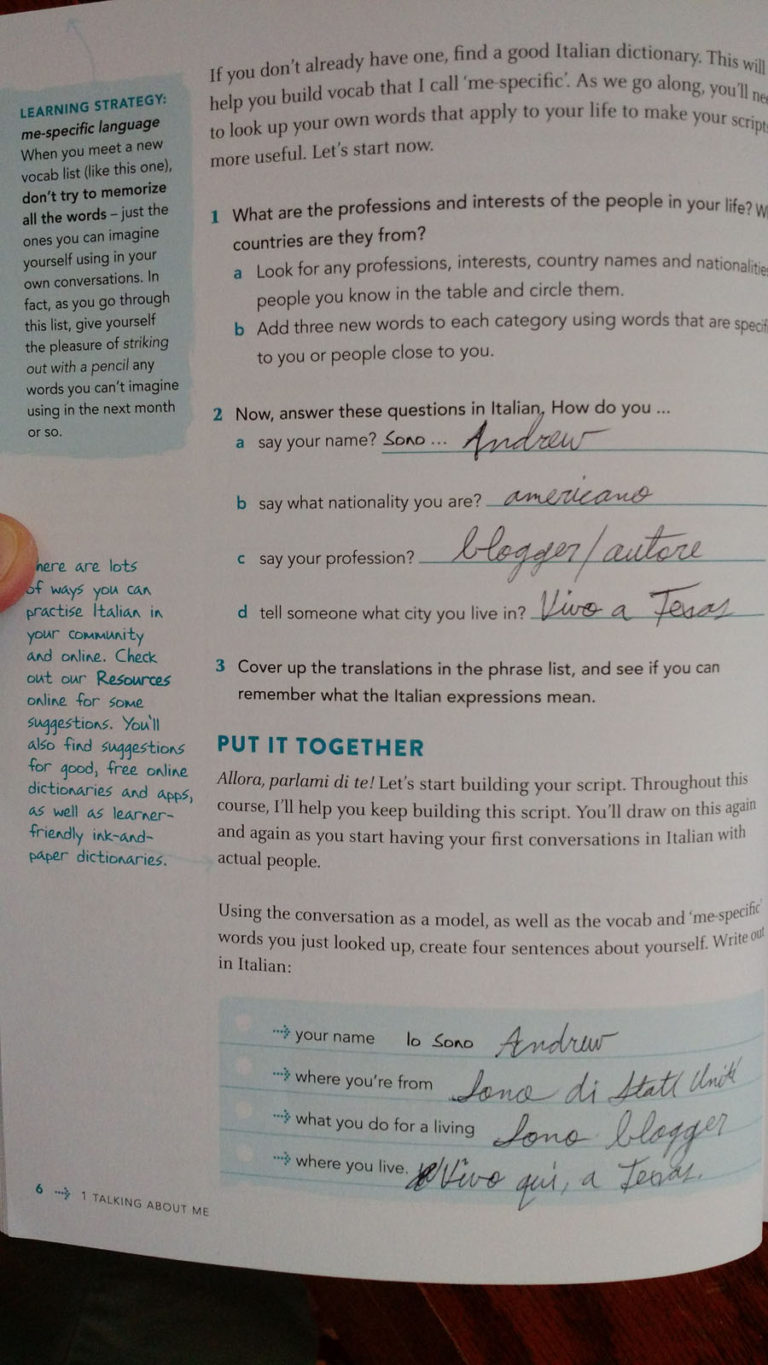 LEARNING STRATEGY:
me-specific language
When you meet a new
vocab list (like this one),
don't try to memorize
all the words – just the
ones you can imagine
yourself using in your
own conversations. In
fact, as you go through
this list, give yourself
the pleasure of striking
out with a pencil any
words you can't imagine
using in the next month
or so.
If you don't already have one, find a good Italian dictionary. This will
help you build vocab that I call 'me-specific'. As we go along, you'll
to look up your own words that apply to your life to make your
more useful. Let's start now.
1 What are the professions and interests of the people in your life?
countries are they from?
a Look for any professions, interests, country names and
people you know in the table and circle them.
b Add three new words to each category using words that are
to you or people close to you.
2 Now, answer these questions in Italian, How do you ...
a say your name? Sono ... Andrew
b say what nationality you are? americano
c say your profession? blogger/autore
d tell someone what city you live in? Vivo a Texas
here are lots
of ways you can
practise Italian in
your community
and online. Check
out our Resources
online for some
suggestions. You'll
also find suggestions
for good, free online
dictionaries and apps,
as well as learner-
friendly ink-and-
paper dictionaries.
3 Cover up the translations in the phrase list, and see if you can
remember what the Italian expressions mean.
PUT IT TOGETHER
Allora, parlami di te! Let's start building your script. Throughout this
course, I'll help you keep building this script. You'll draw on this again
and again as you start having your first conversations in Italian with
actual people.
Using the conversation as a model, as well as the vocab and 'me-specific'
words you just looked up, create four sentences about yourself. Write out
in Italian:
your name Io sono Andrew
where you're from Sono di Stati Uniti
what you do for a living Sono blogger
where you live. Vivo qui, a Texas.
6 1 TALKING ABOUT ME